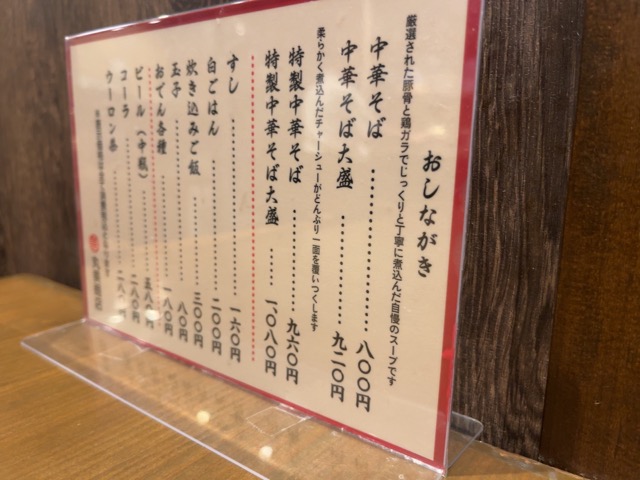 おしながき
厳選された豚骨と鶏ガラでじっくりと丁寧に煮込んだ自慢のスープです
中華そば…………八〇〇円
中華そば大盛……九二〇円
柔らかく煮込んだチャーシューがどんぶり一面を覆いつくします
特製中華そば……九六〇円
特製中華そば大盛……一、〇八〇円
すし…………一六〇円
白ごはん…………二〇〇円
炊き込みご飯……三〇〇円
玉子…………八〇円
おでん各種……一八〇円
ビール(中瓶)……五八〇円
コーラ…………一八〇円
ウーロン茶……二八〇円